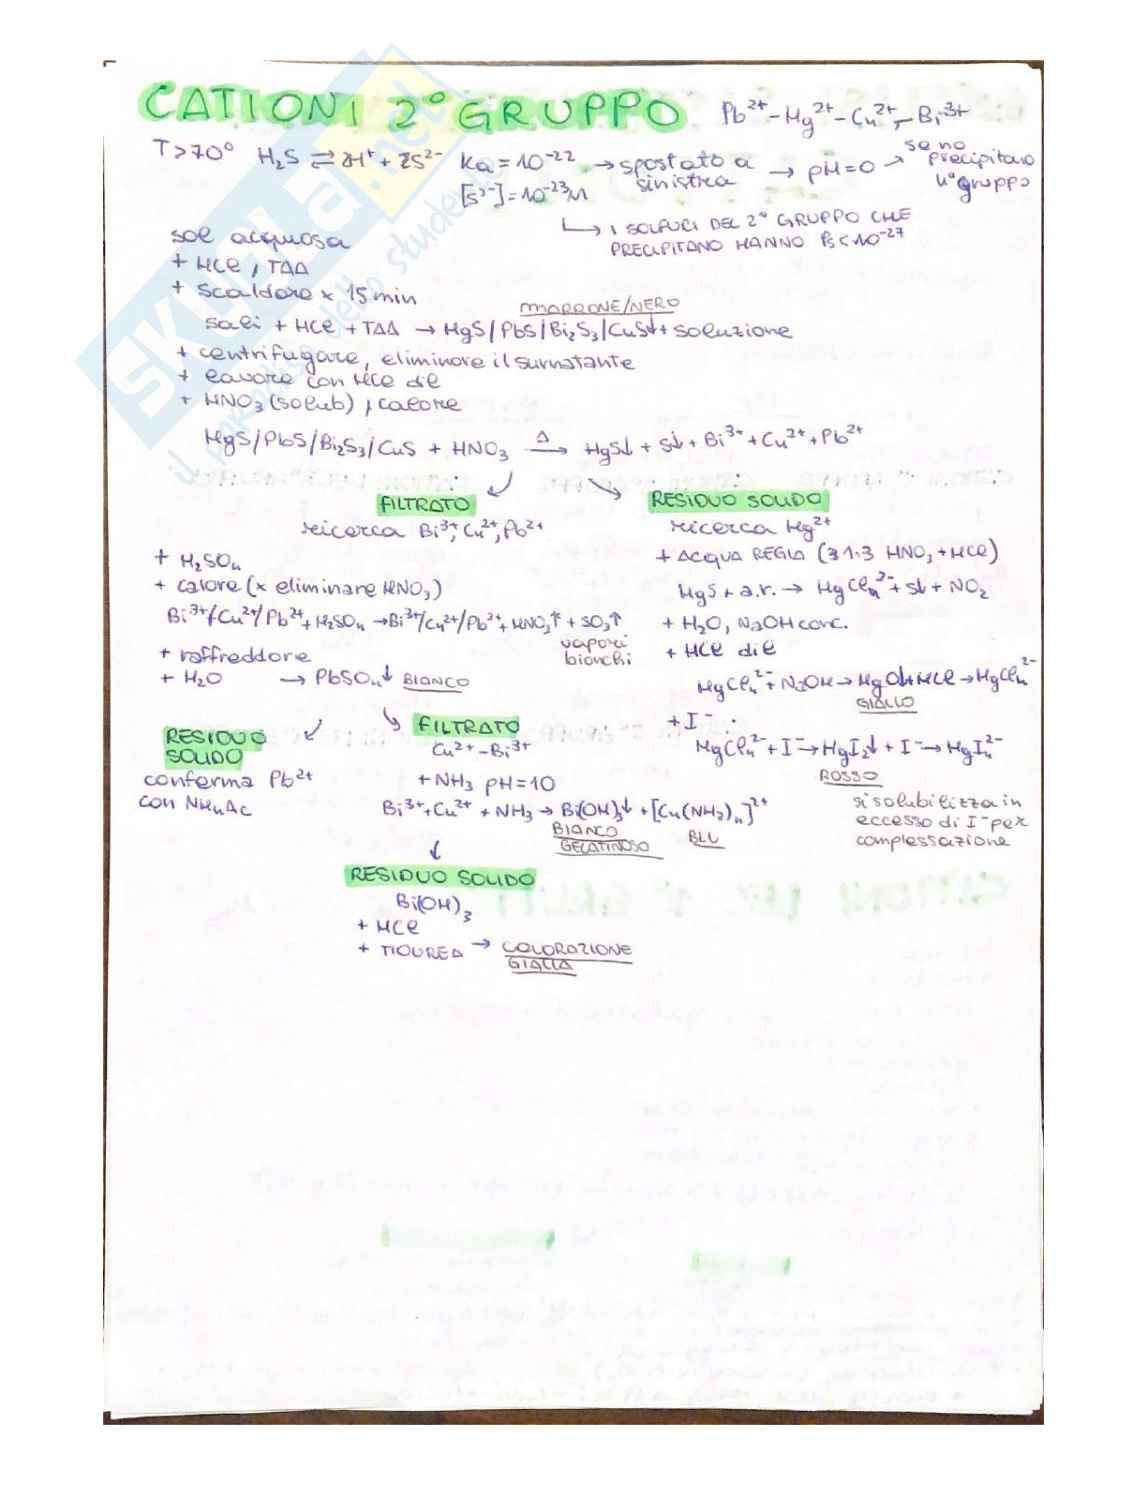 CATIONI 2° GRUPPO Pb²⁺ - Hg²⁺ - Cu²⁺ - Bi³⁺
T>70° H₂S ⇌ 2H⁺ + S²⁻ Ka = 10⁻²² → spostato a sinistra → pH=0 → se no precipitano 4° gruppo
[S²⁻] = 10⁻²³M
↳ I SOLFURI DEL 2° GRUPPO CHE
PRECIPITANO HANNO Ps<10⁻²⁷
sol acquosa
+ HCl, TAA
+ scaldare x 15 min
MARRONE/NERO
sali + HCl + TAA → HgS/PbS/Bi₂S₃/CuS↓ + soluzione
+ centrifugare, eliminare il surnatante
+ lavare con HCl dil
+ HNO₃ (solub), calore
HgS/PbS/Bi₂S₃/CuS + HNO₃ —Δ→ HgS↓ + S↓ + Bi³⁺ + Cu²⁺ + Pb²⁺
FILTRATO
ricerca Bi³⁺, Cu²⁺, Pb²⁺
+ H₂SO₄
+ calore (x eliminare HNO₃)
Bi³⁺/Cu²⁺/Pb²⁺ + H₂SO₄ → Bi³⁺/Cu²⁺/Pb²⁺ + HNO₃↑ + SO₃↑
vapori
bianchi
+ raffreddare
+ H₂O → PbSO₄↓ BIANCO
RESIDUO
SOLIDO
conferma Pb²⁺
con NH₄Ac
FILTRATO
Cu²⁺ - Bi³⁺
+ NH₃ pH=10
Bi³⁺ + Cu²⁺ + NH₃ → Bi(OH)₃↓ + [Cu(NH₂)₄]²⁺
BIANCO
GELATINOSO
BLU
RESIDUO SOLIDO
Bi(OH)₃
+ HCl
+ TIOUREA → COLORAZIONE
GIALLA
RESIDUO SOLIDO
ricerca Hg²⁺
+ ACQUA REGIA (3 1:3 HNO₃ + HCl)
HgS + a.r. → HgCl₄²⁻ + S↓ + NO₂
+ H₂O, NaOH conc.
+ HCl dil
HgCl₄²⁻ + NaOH → HgO↓ + HCl → HgCl₄²⁻
GIALLO
+ I⁻
HgCl₄²⁻ + I⁻ → HgI₂↓ + I⁻ → HgI₄²⁻
ROSSO
si solubilizza in
eccesso di I⁻ per
complessazione
SKUOLA.net
il paradiso dello studente